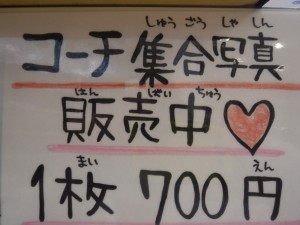 しゅうごうしゃしん
コーチ集合写真
はんばいちゅう
販売中♡
まいえん
1枚700円